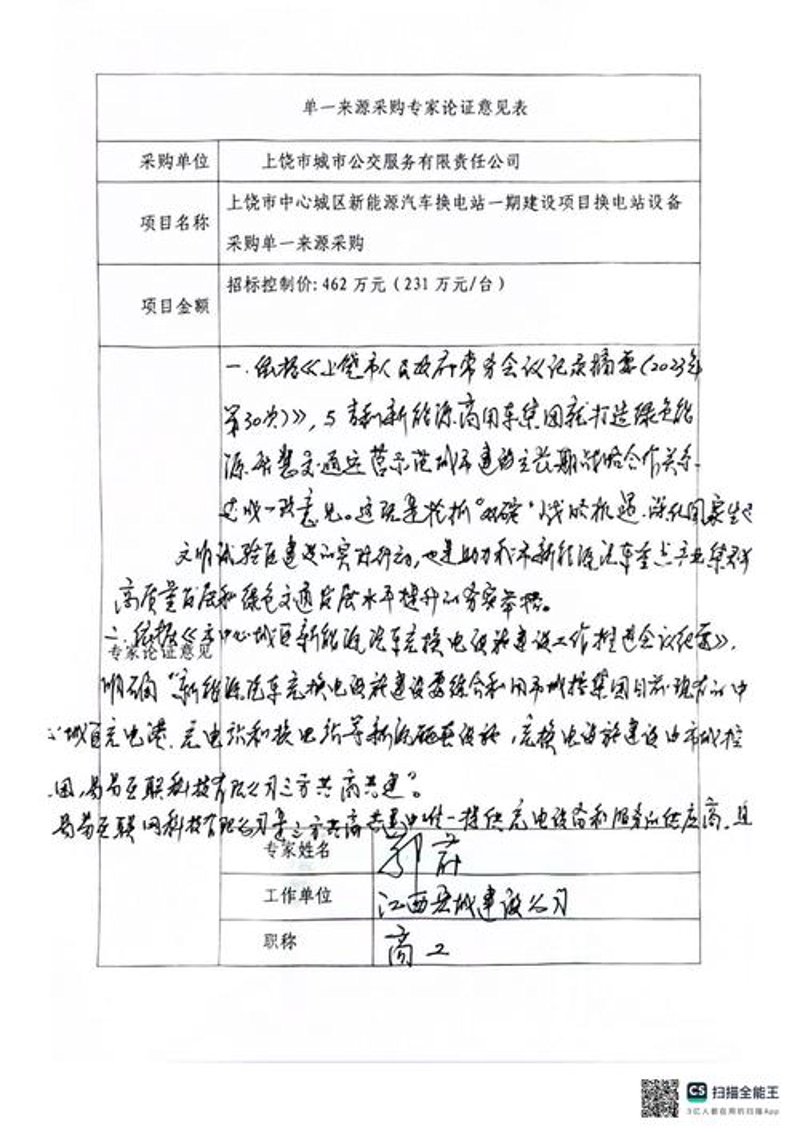 单一来源采购专家论证意见表
采购单位 上饶市城市公交服务有限责任公司
项目名称 上饶市中心城区新能源汽车换电站一期建设项目换电站设备
采购单一来源采购
项目金额 招标控制价: 462 万元（231 万元/台）
一.依据《上饶市人民政府常务会议记录摘要(2023年
第30次)》,与吉利新能源商用车集团就打造绿色能
源智慧交通运营示范城市建设立长期战略合作关系
达成一致意见。这既是抢抓"双碳"战略机遇,深化国家生态
文明试验区建设的实际行动,也是助力我市新能源汽车重点产业集群
高质量发展和绿色交通发展水平提升的务实举措。
二.依据《中心城区新能源汽车充换电设施建设工作推进会议纪要》,
专家论证意见
明确"新能源汽车充换电设施建设要综合利用市城控集团目前现有的中
心城区充电港、充电站和换电站等新能源基础设施,充换电设施建设由市城控
团,易易互联科技有限公司三方共商共建"。
易易互联网科技有限公司是三方共商共建中唯一提供充电设备和服务的供应商,且
专家姓名
工作单位 江西 城建设公司
职称 高工
CS 扫描全能王
3亿人都在用的扫描App